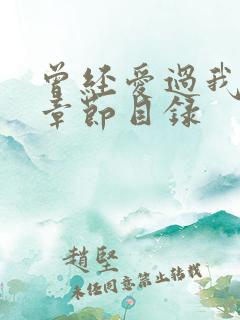 曾经爱过我
章節目錄
趙堅
未经同意禁止转载